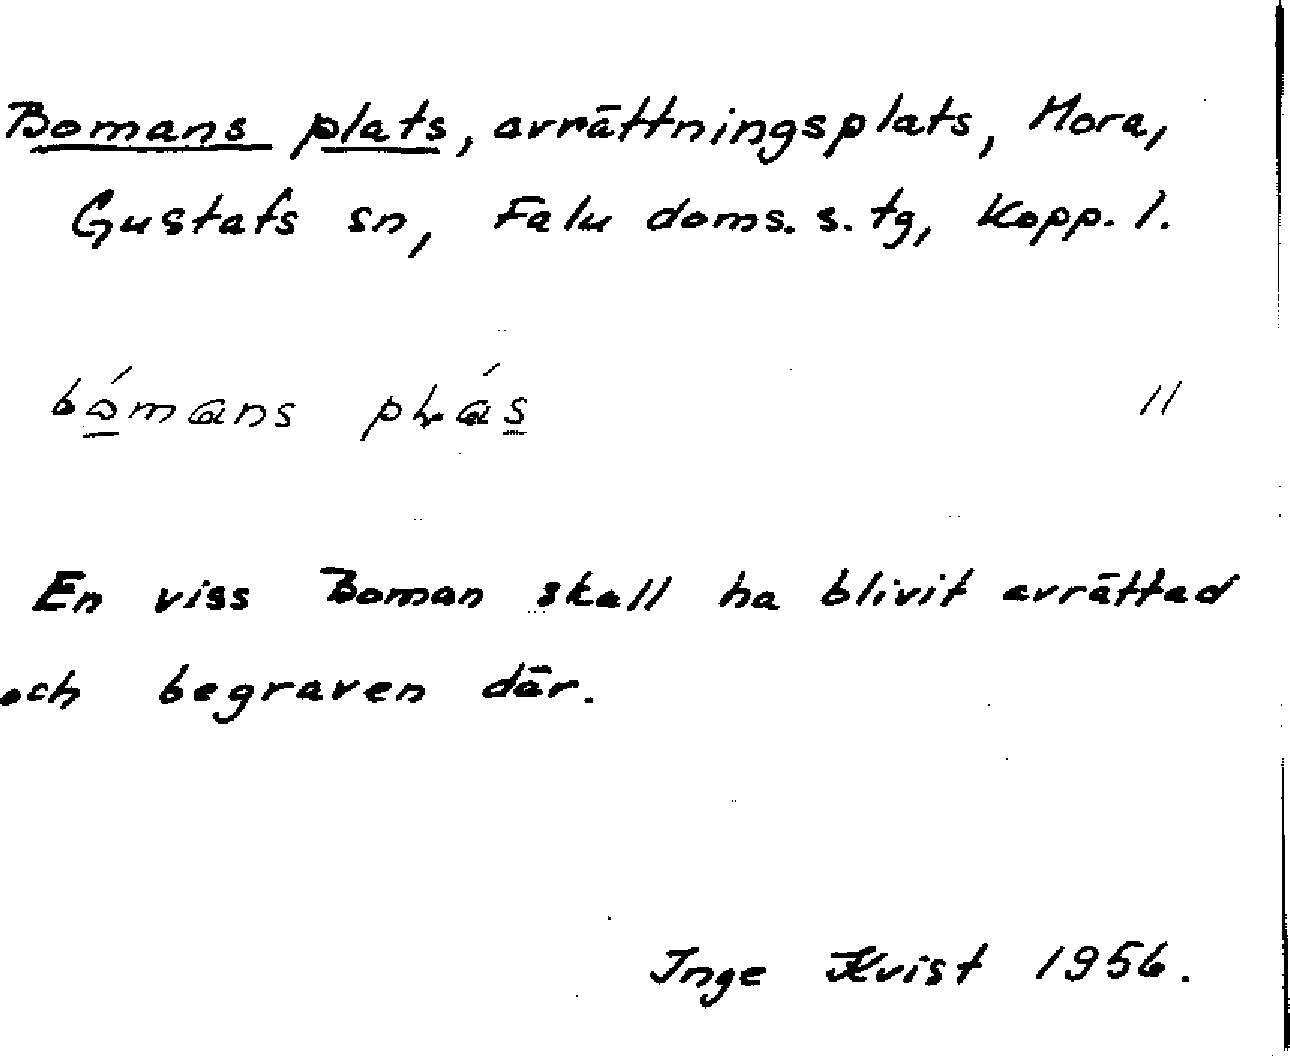 Bomans plats, avrättningsplats, Mora,
Gustafs sn, Falu doms. s. tg, Kopp. l.
bómans 11
En viss Boman skall ha blivit avrättad
och begraven där.
Inge Kvist 1956.